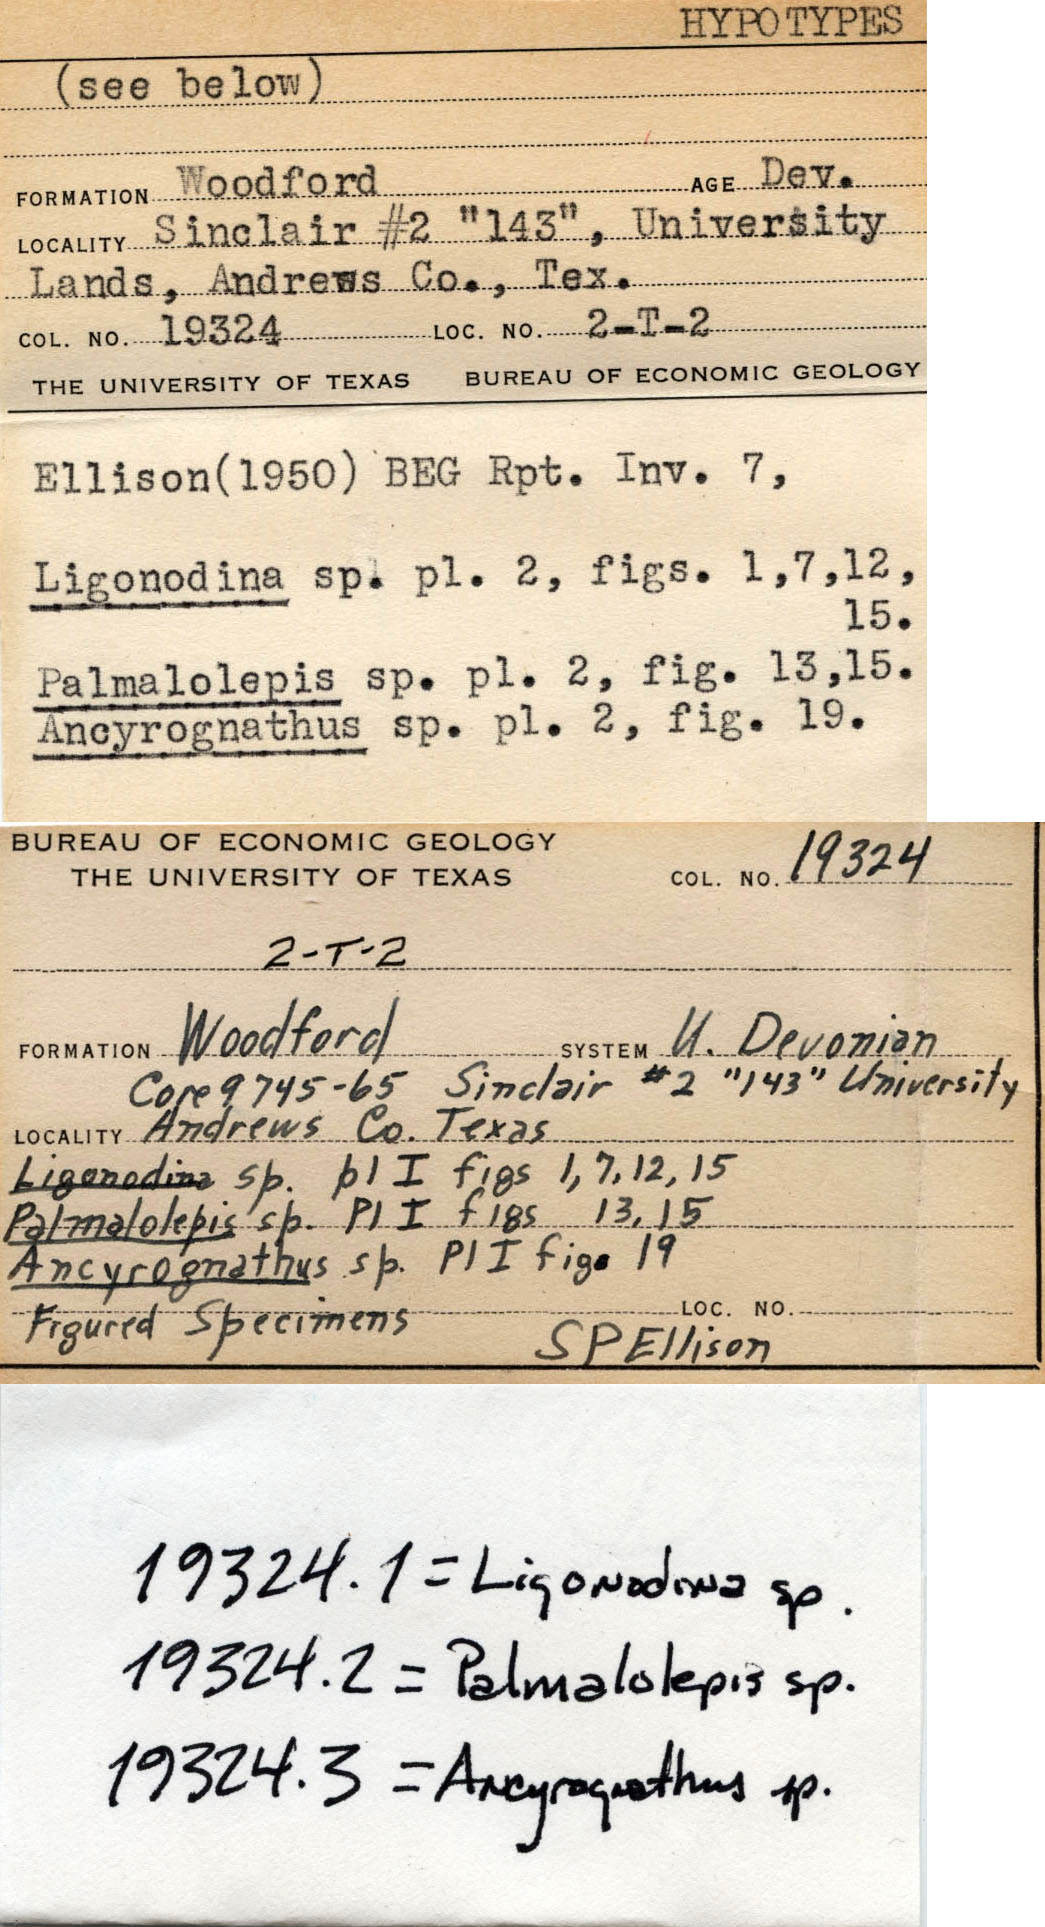 HYPOTYPES
(see below)
FORMATION Woodford AGE Dev.
LOCALITY Sinclair #2 "143", University
Lands, Andrews Co., Tex.
COL. NO. 19324 LOC. NO. 2-T-2
THE UNIVERSITY OF TEXAS BUREAU OF ECONOMIC GEOLOGY
Ellison(1950) BEG Rpt. Inv. 7,
Ligonodina sp. pl. 2, figs. 1,7,12,
15.
Palmalolepis sp. pl. 2, fig. 13,15.
Ancyrognathus sp. pl. 2, fig. 19.
BUREAU OF ECONOMIC GEOLOGY
THE UNIVERSITY OF TEXAS COL. NO. 19324
2-T-2
FORMATION Woodford SYSTEM U. Devonian
Core 9745-65 Sinclair #2 "143" University
LOCALITY Andrews Co. Texas
Ligonodina sp. pl I figs 1, 7, 12, 15
Palmalolepis sp. Pl I figs 13, 15
Ancyrognathus sp. Pl I fig. 19
Figured Specimens LOC. NO.
SPEllison
19324.1 = Ligonodina sp.
19324.2 = Palmalolepis sp.
19324.3 = Ancyrognathus sp.